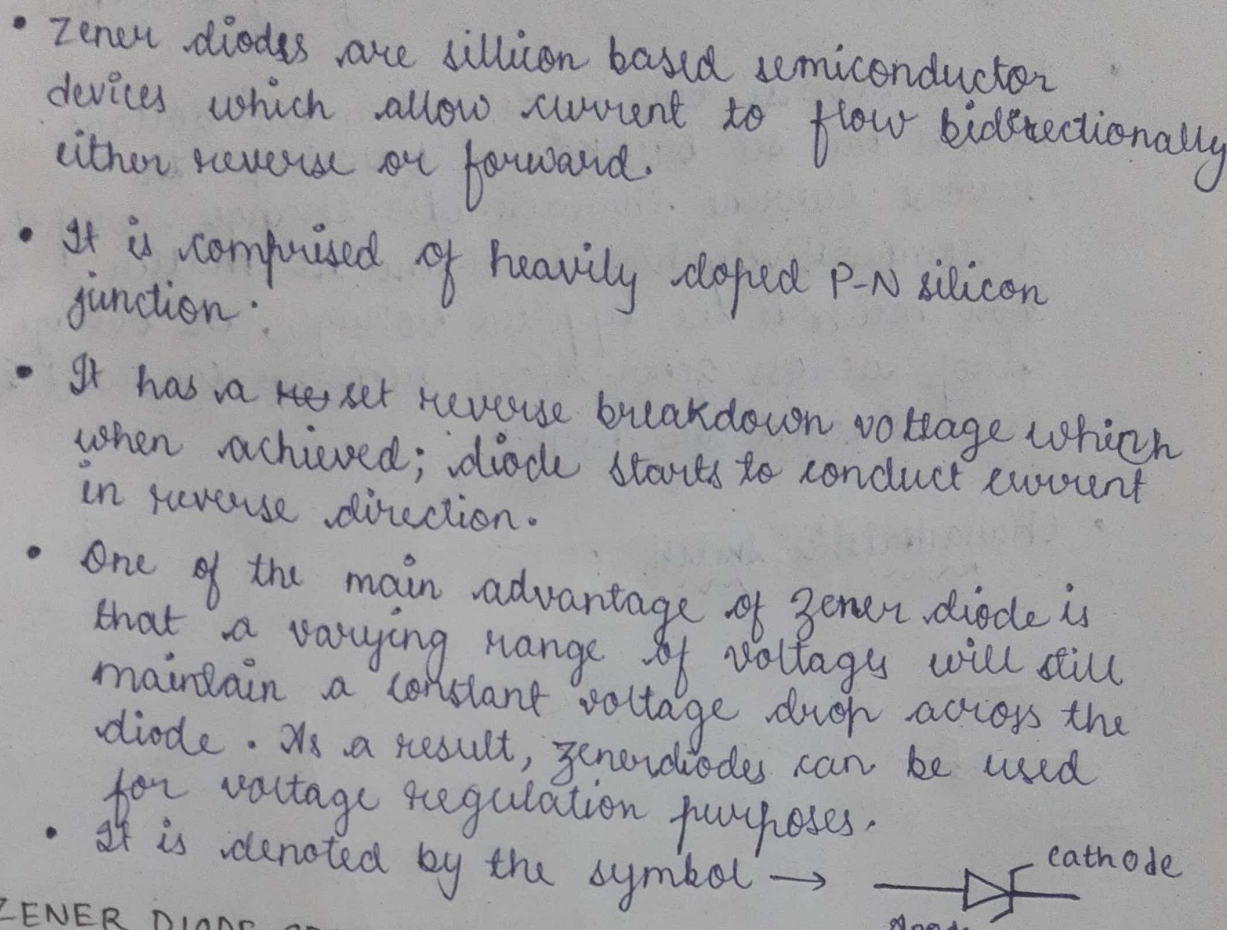 • Zener diodes are sillicon based semiconductor
devices which allow current to flow bidirectionally
either reverse or forward.
• It is comprised of heavily doped P-N silicon
junction.
• It has a set reverse breakdown voltage which
when achieved; diode starts to conduct current
in reverse direction.
• One of the main advantage of zener diode is
that a varying range of voltages will still
maintain a constant voltage drop across the
diode. As a result, zenerdiodes can be used
for voltage regulation purposes.
• It is denoted by the symbol → cathode
Anode
ZENER DIODE